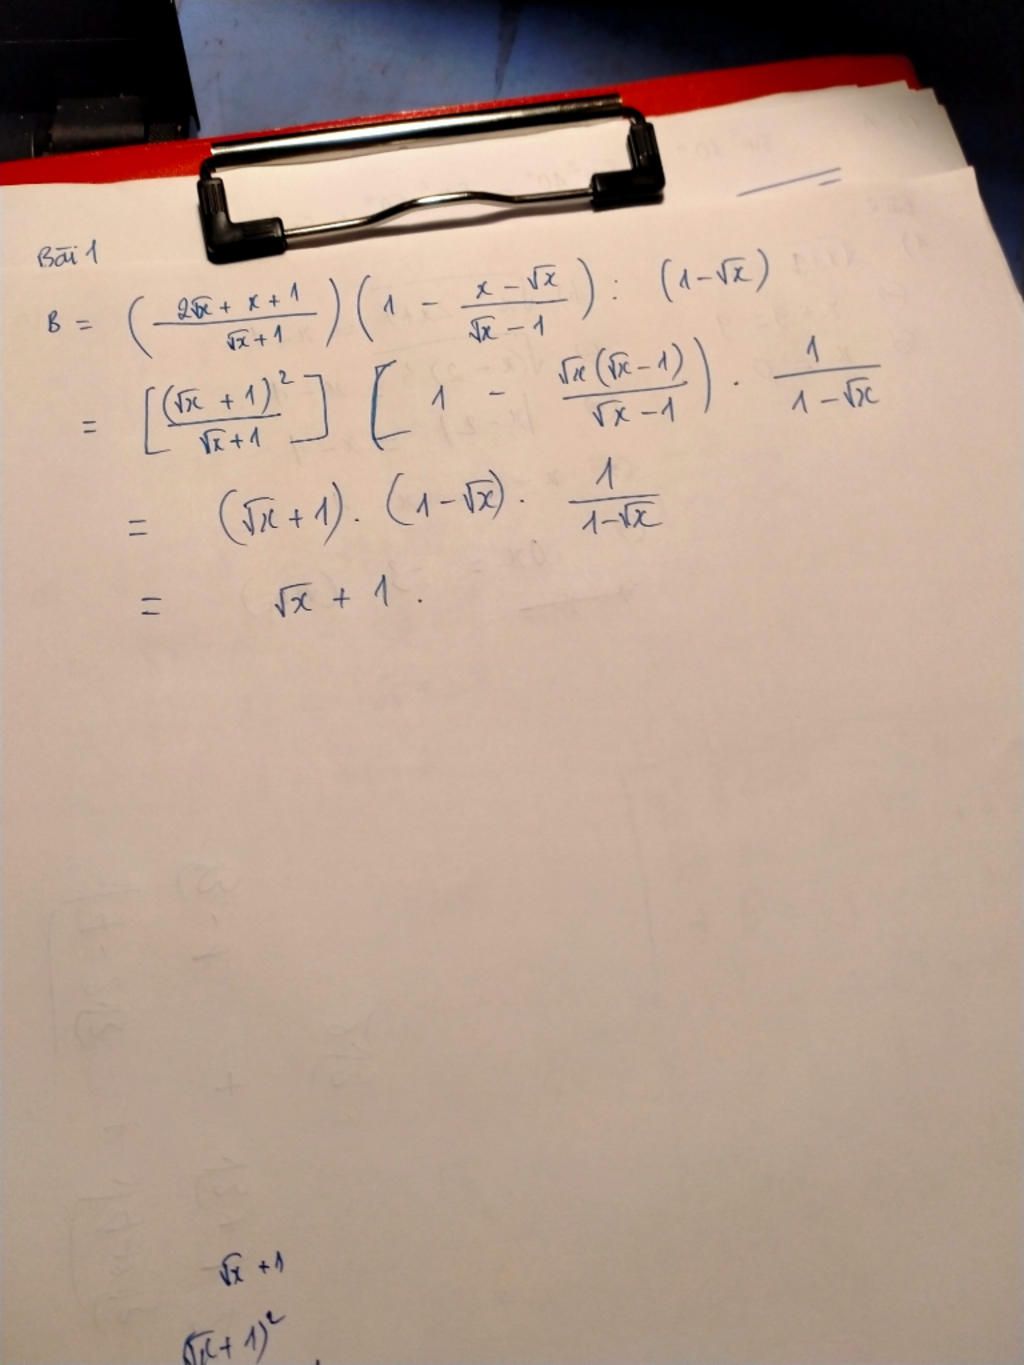 Bài 1
B = ( (2√x + x + 1)/(√x + 1) ) ( 1 - (x - √x)/(√x - 1) ) : (1 - √x)
= [ (√x + 1)²/(√x + 1) ] [ 1 - √x(√x - 1)/(√x - 1) ) . 1/(1 - √x)
= (√x + 1) . (1 - √x) . 1/(1 - √x)
= √x + 1 .
√x + 1
(√x + 1)²